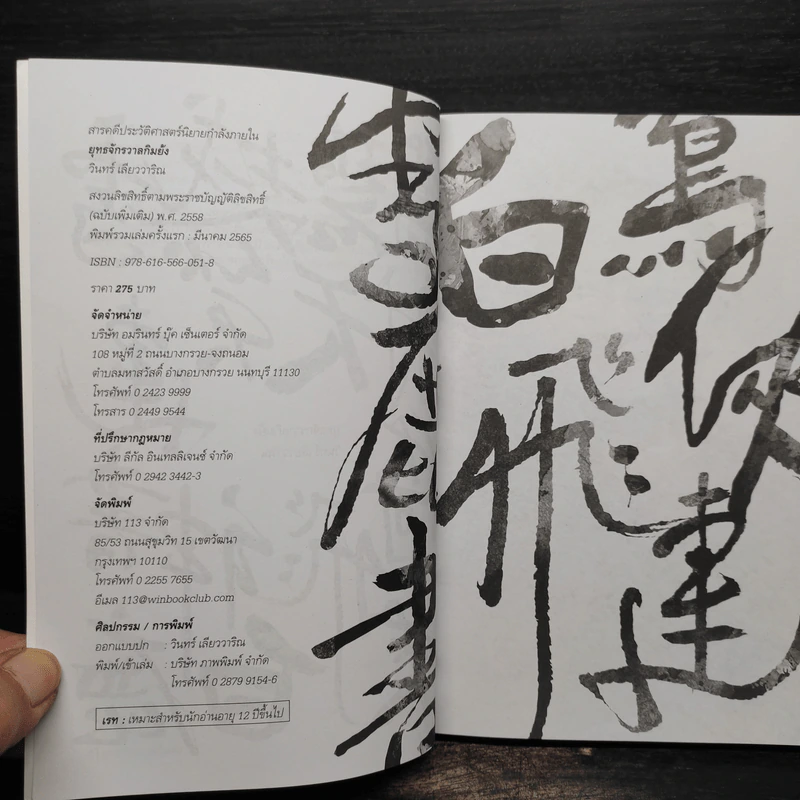 สารคดีประวัติศาสตร์นิยายกำลังภายใน
ยุทธจักรวาลกิมย้ง
วินทร์ เลียววาริณ
สงวนลิขสิทธิ์ตามพระราชบัญญัติลิขสิทธิ์
(ฉบับเพิ่มเติม) พ.ศ. 2558
พิมพ์รวมเล่มครั้งแรก : มีนาคม 2565
ISBN : 978-616-566-051-8
ราคา 275 บาท
จัดจำหน่าย
บริษัท อมรินทร์ บุ๊ค เซ็นเตอร์ จำกัด
108 หมู่ที่ 2 ถนนบางกรวย-จงถนอม
ตำบลมหาสวัสดิ์ อำเภอบางกรวย นนทบุรี 11130
โทรศัพท์ 0 2423 9999
โทรสาร 0 2449 9544
ที่ปรึกษากฎหมาย
บริษัท ลีกัล อินเทลลิเจนซ์ จำกัด
โทรศัพท์ 0 2942 3442-3
จัดพิมพ์
บริษัท 113 จำกัด
85/53 ถนนสุขุมวิท 15 เขตวัฒนา
กรุงเทพฯ 10110
โทรศัพท์ 0 2255 7655
อีเมล 113@winbookclub.com
ศิลปกรรม / การพิมพ์
ออกแบบปก : วินทร์ เลียววาริณ
พิมพ์/เข้าเล่ม : บริษัท ภาพพิมพ์ จำกัด
โทรศัพท์ 0 2879 9154-6
เรท : เหมาะสำหรับนักอ่านอายุ 12 ปีขึ้นไป
書
白飛
俠連